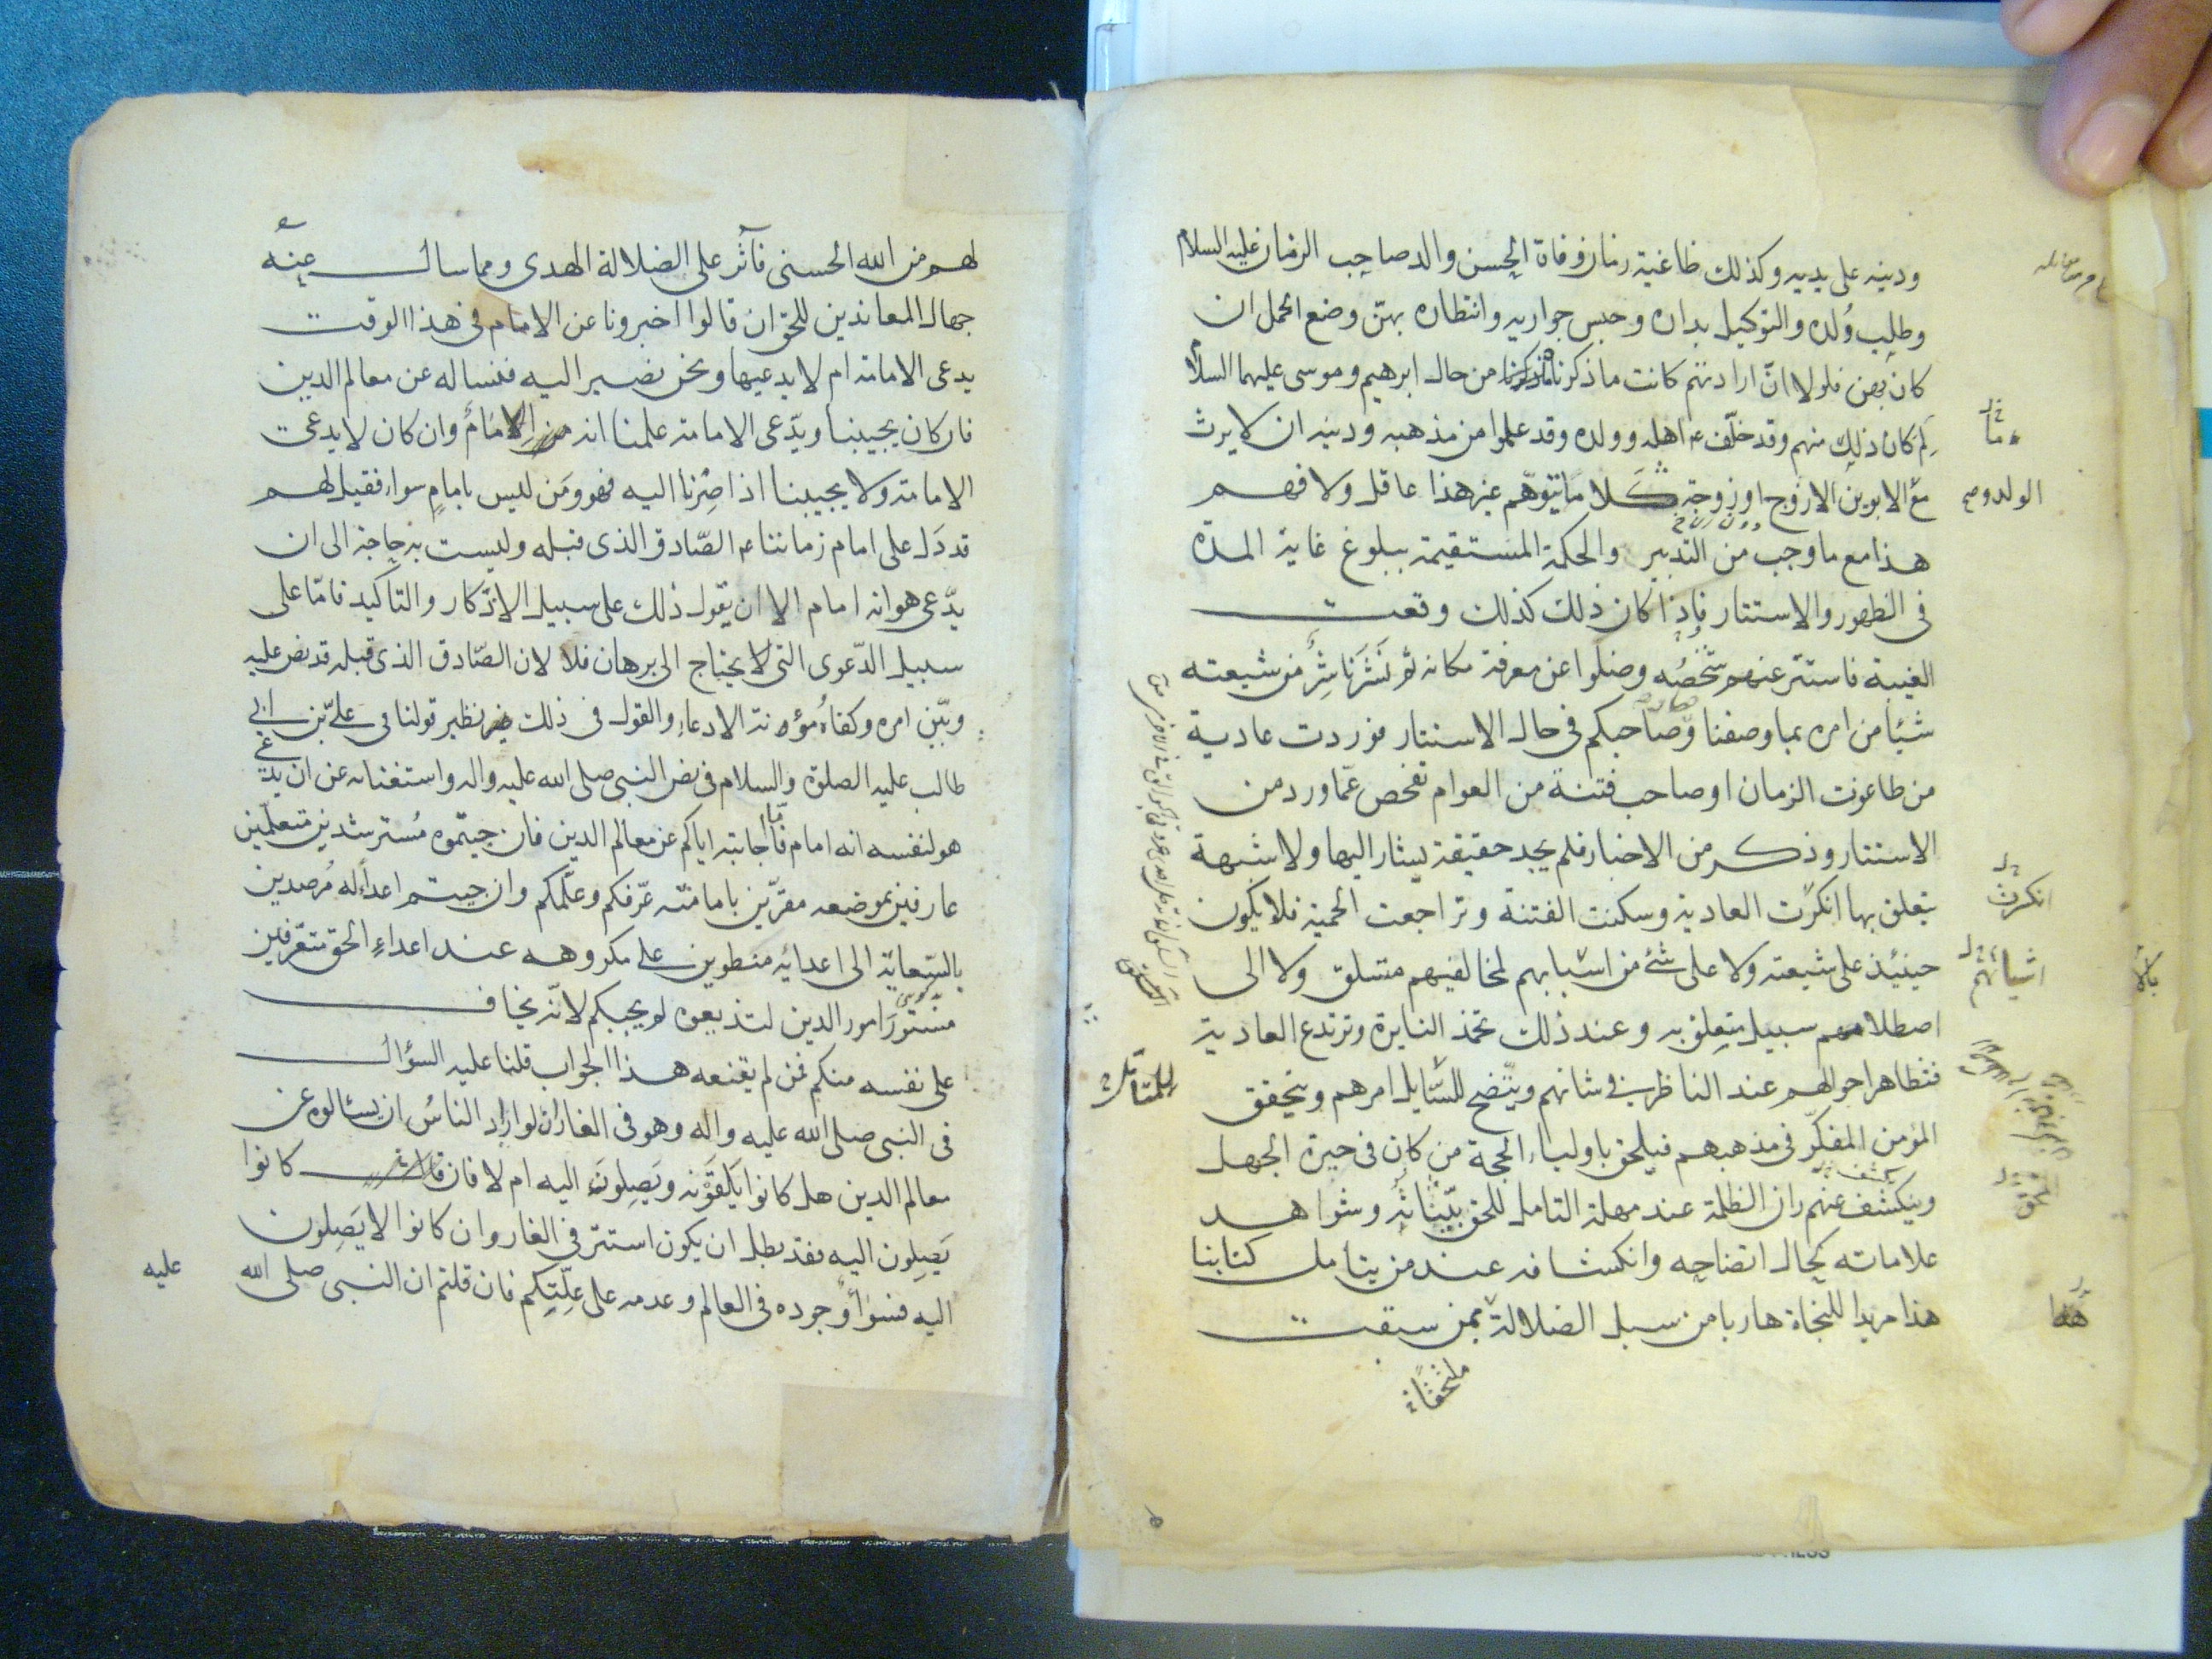 ودينه على يديه وكذلك طاغية زمان وفاة الحسن والد صاحب الزمان عليه السلام
وطلب ولده والتوكيل بداره وحبس جواريه وانتظاره بهنّ وضع الحمل ان
كان بهن فلولا انّ ارادتهم كانت ما ذكرنا من حال ابرهيم وموسى عليهما السلام
لِمَ كان ذلك منهم وقد خلّف ع اهله وولده وقد علموا من مذهبه ودينه ان لا يرث
مع الابوين الا زوج او زوجة كلا ما يتوهّم غير هذا عاقل ولا فهم
هذا مع ما وجب من التدبير والحكمة المستقيمة ببلوغ غاية المدة
فى الظهور والاستتار فاذا كان ذلك كذلك وقعت
الغيبة فاستتر عنهم شخصُه وضلّوا عن معرفة مكانه ثم نَشَرَ ناشِرٌ من شيعته
شيئا من امره بما وصفنا وصاحبكم فى حال الاستتار فوردت عادية
من طاغوت الزمان او صاحب فتنة من العوام تفحص عمّا ورد من
الاستتار وذكر من الاخبار فلم يجد حقيقة يشار اليها ولا شبهة
يتعلق بها انكرت العادية وسكنت الفتنة وتراجعت الحمية فلا يكون
حينئذ على شيعته ولا على شئ من اسبابهم لمخالفيهم متسلق ولا الى
اصطلامهم سبيل متعلق به وعند ذلك تخمد النايرة وترتدع العادية
فتظاهر احوالهم عند الناظر فى شانهم ويتّضح للسّايل امرهم ويتحقق
المؤمن المفكّر فى مذهبهم فيلحق باولياء الحجة من كان فى حيرة الجهل
وينكشف عنهم ران الظلمة عند مهلة التامل للحق بيّناته وشواهد
علاماته كحال اتضاحه وانكشافه عند من يتامل كتابنا
هذا مريدا للنجاة هاربا من سبل الضلالة بمن سبقت
الولد و صح
انكرت
اسبابهم
للمتامل
هذا
لهم من الله الحسنى فآثر على الضلالة الهدى ومما سال عنه
جهال المعاندين للحق ان قالوا اخبرونا عن الامام فى هذا الوقت
يدعى الامامة ام لا يدعيها ونحن نصير اليه فنساله عن معالم الدين
فان كان يجيبنا ويدّعى الامامة علمنا انه الامام وان كان لا يدعى
الامامة ولا يجيبنا اذا صِرنا اليه فهو ومَن ليس بامامٍ سواء فقيل لهم
قد دَل على امام زماننا ع الصّادق الذى قبله وليست به حاجة الى ان
يدّعى هو انه امام الا ان يقول ذلك على سبيل الاذكار والتاكيد فامّا على
سبيل الدّعوى التى لا يحتاج الى برهان فلا لان الصّادق الذى قبله قد نص عليه
وبيّن امره وكفاهُ مؤونة الادعاء والقول فى ذلك نظير قولنا فى علىّ بن ابى
طالب عليه الصلوة والسلام فى نص النبى صلى الله عليه واله واستغنائه عن ان يدعى
هو لنفسه انه امام فامّا اجابته اياكم عن معالم الدين فان جيتموه مُسترشدين متعلمين
عارفين بموضعه مقرّين بامامته عرّفكم وعلّمكم وان جيتم اعداءً له مُرصدين
بالسّعاية الى اعدائه منطوين على مكروهه عند اعداءِ الحق متعرفين
مستور امور الدين لتذيعوه لم يجبكم لانّه يخاف
على نفسه منكم فمن لم يقنعه هذا الجواب قلبنا عليه السؤال
فى النبى صلى الله عليه واله وهو فى الغار ان لو اراد الناسُ ان يسئالوه عن
معالم الدين هل كانوا يَلقَوْنه ويَصِلونَ اليه ام لا فان كانوا
يَصِلون اليه فقد بطل ان يكون استتر فى الغار وان كانوا لا يَصِلون
اليه فسواءٌ وجوده فى العالم وعدمه على عِلّتِكم فان قلتم ان النبى صلى الله عليه